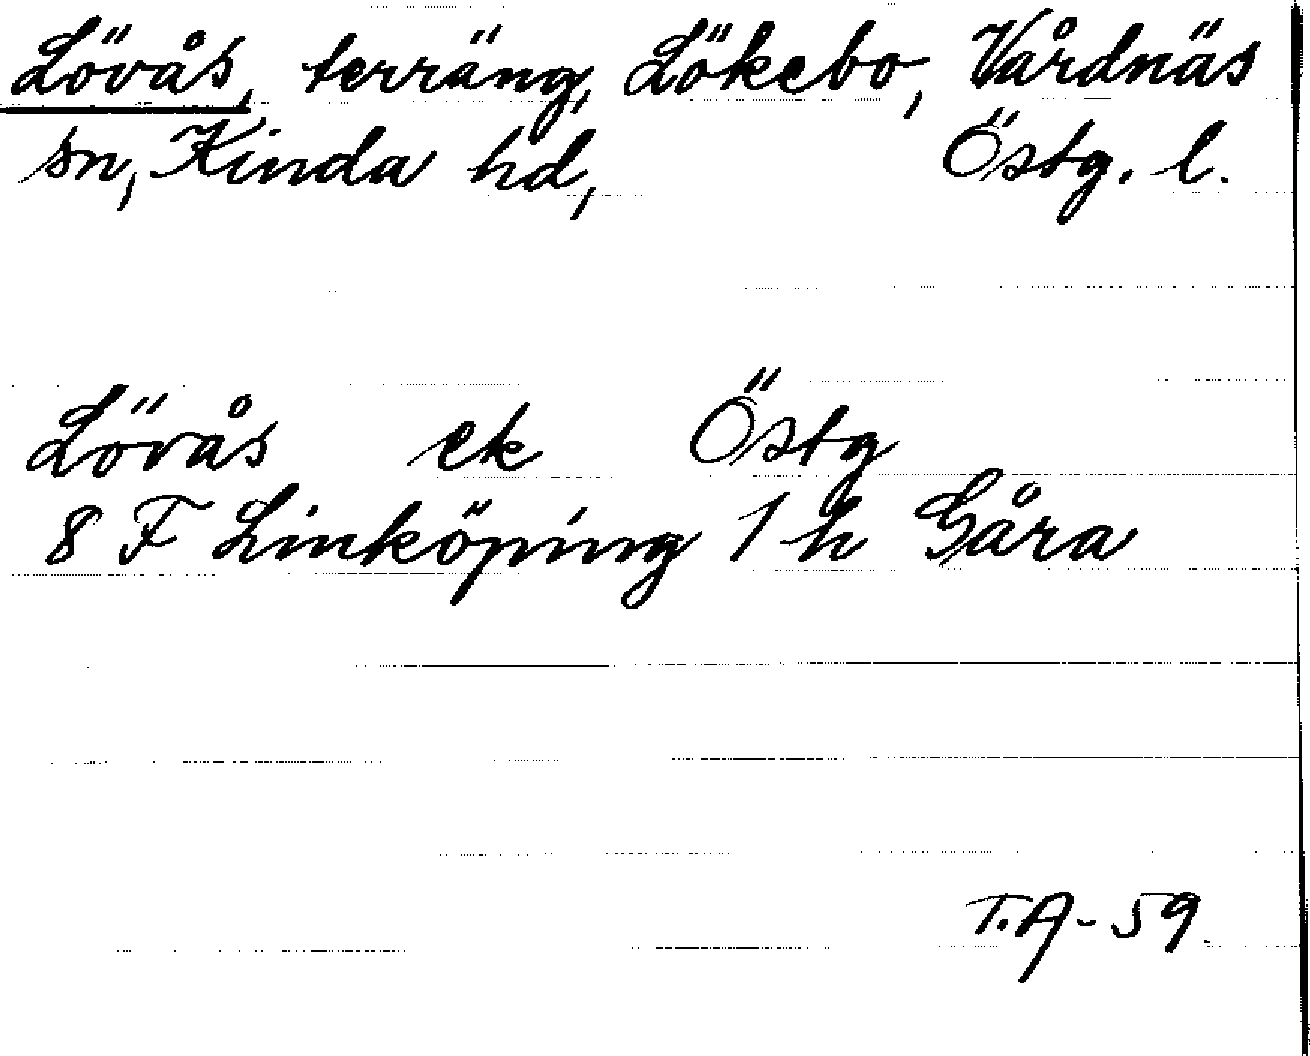 Lövås, terräng, Lökebo, Vårdnäs
sn, Kinda hd, Östg. l.
Lövås ek Östg
8 F Linköping 1 h Gåra
T.A-59.